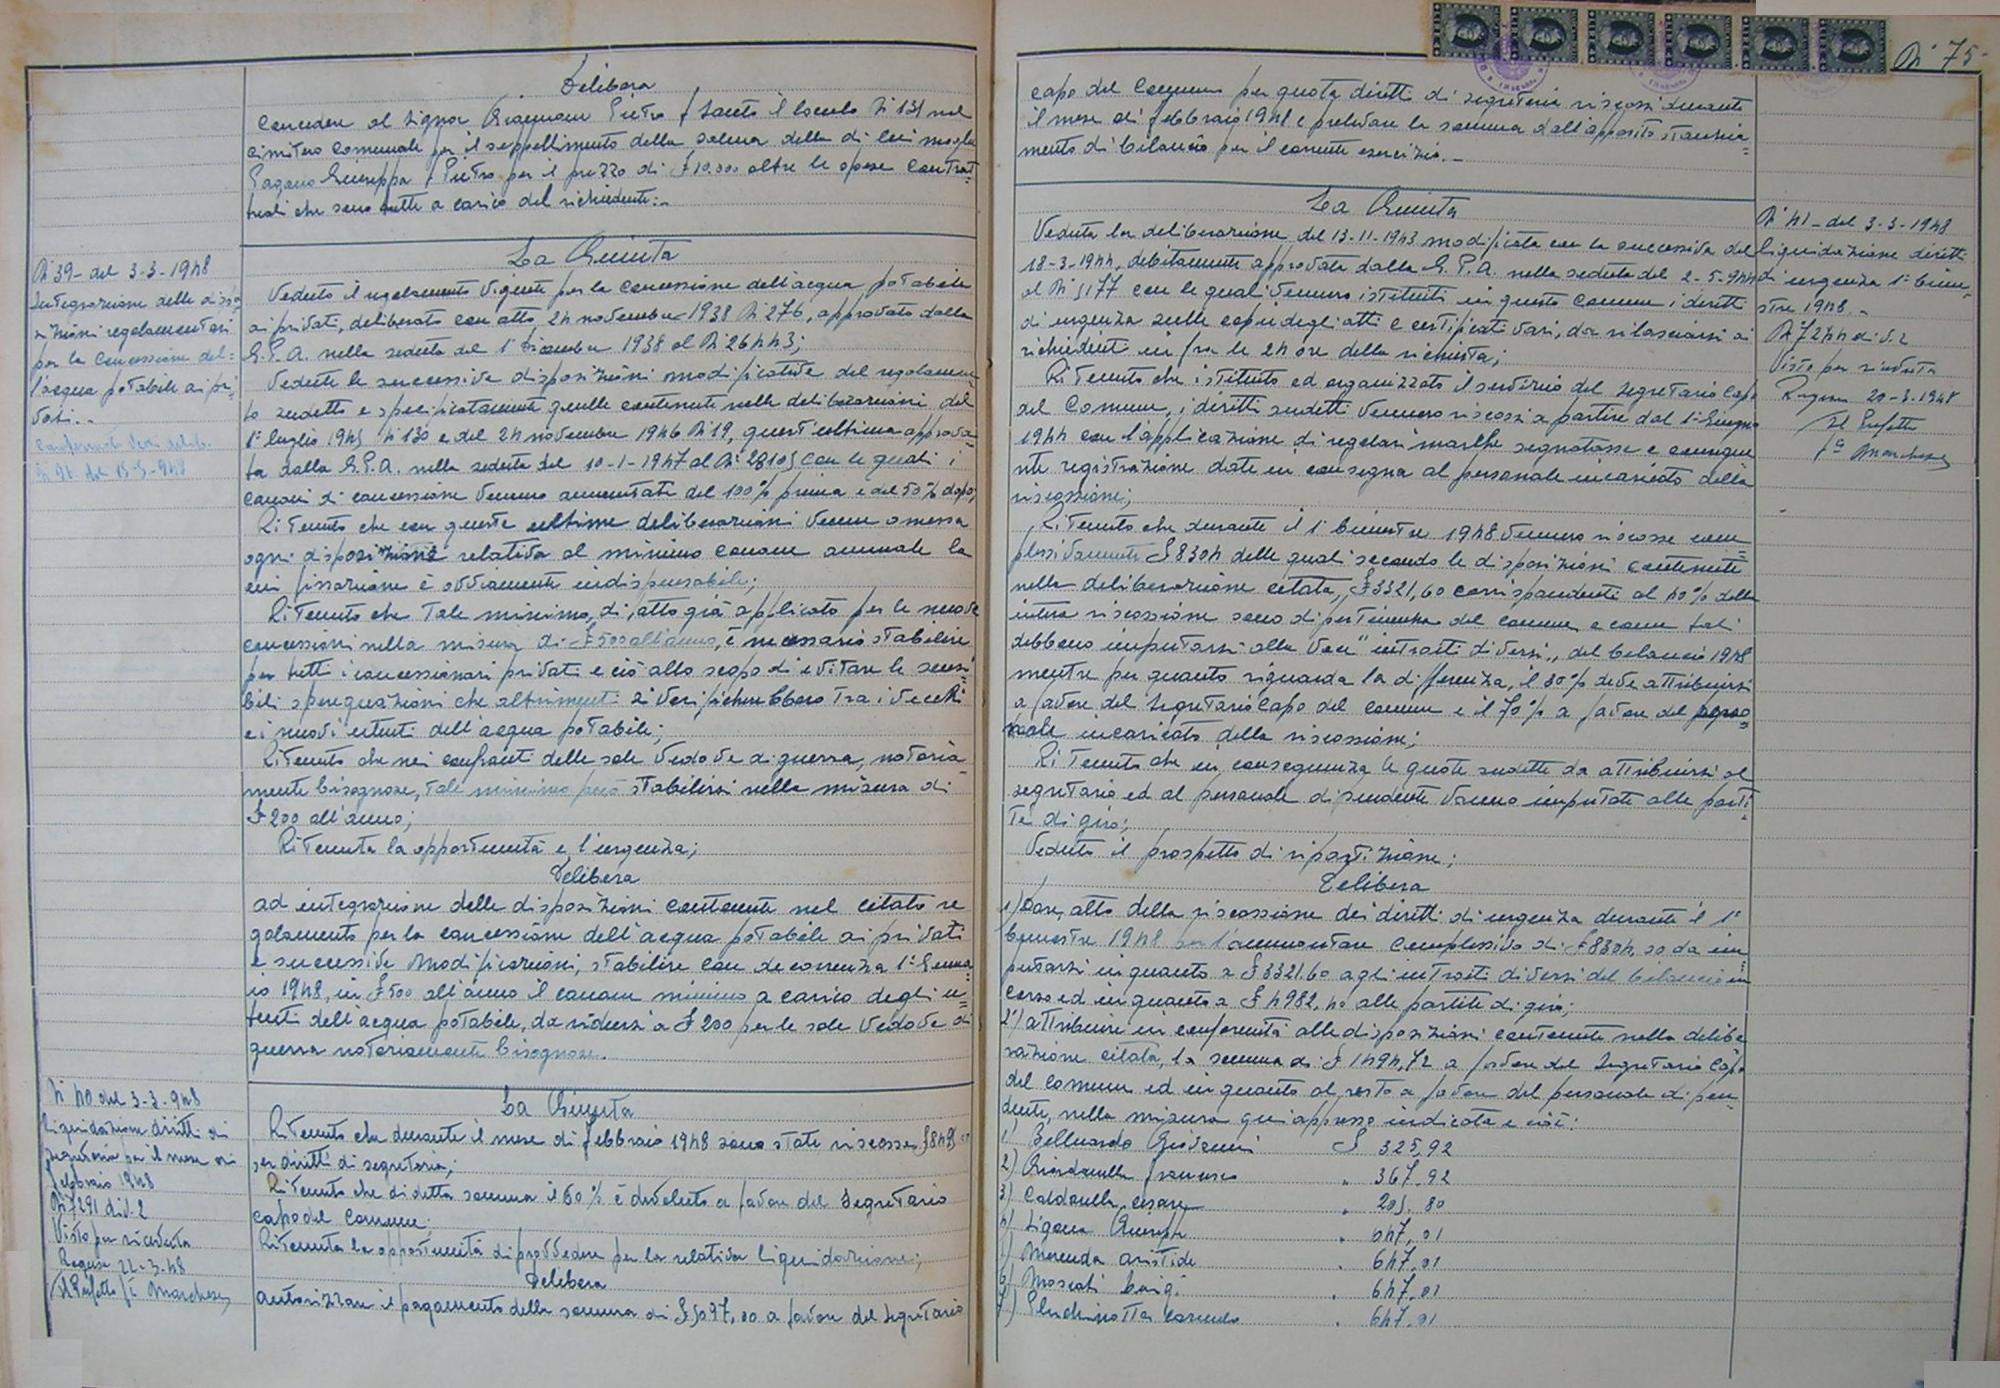 Delibera
Concedere al Signor Giacomo Pietro f Santo il loculo N 131 nel
cimitero comunale per il seppellimento della salma della di lui moglie
Pagano Giuseppa f Pietro per il prezzo di £ 10.000 oltre le spese contrat=
tuali che sono tutte a carico del richiedente:-
N 39 - del 3-3-1948
Integrazione delle dispo
sizioni regolamentari
per la concessione del=
l'acqua potabile ai pri=
vati.-
Confermata con delib.
N 96 del 15-5-948
La Giunta
Veduto il regolamento vigente per la concessione dell'acqua potabile
ai privati, deliberato con atto 24 novembre 1938 N 276, approvato dalla
G.P.A. nella seduta del 1° dicembre 1938 al N 26443;
Vedute le successive disposizioni modificative del regolamen
to sudetto e specificatamente quelle contenute nelle deliberazioni del
1° luglio 1945 N 130 e del 24 novembre 1946 N 19, quest'ultima approva
ta dalla G.P.A. nella seduta del 10-1-1947 al N 28105 con le quali i
canoni di concessione vennero aumentati del 100% prima e del 50% dopo;
Ritenuto che con queste ultime deliberazioni venne omessa
ogni disposizione relativa al minimo canone annuale la
cui fissazione è ovviamente indispensabile;
Ritenuto che tale minimo, di fatto già applicato per le nuove
concessioni nella misura di £ 500 all'anno, è necessario stabilire
per tutti i concessionari privati e ciò allo scopo di evitare le sensi
bili sperequazioni che altrimenti si verificherebbero tra i vecchi
e i nuovi utenti dell'acqua potabile;
Ritenuto che nei confronti delle sole vedove di guerra, notoria
mente bisognose, tale minimo può stabilirsi nella misura di
£ 200 all'anno;
Ritenuta la opportunità e l'urgenza;
Delibera
ad integrazione delle disposizioni contenute nel citato re
golamento per la concessione dell'acqua potabile ai privati
e successive modificazioni, stabilire con decorrenza 1° Genna=
io 1948, in £ 500 all'anno il canone minimo a carico degli u=
tenti dell'acqua potabile, da ridursi a £ 200 per le sole vedove di
guerra notoriamente bisognose.
N 40 del 3-3-948
Liquidazione diritti di
segreteria per il mese di
febbraio 1948
N 7291 div. 2
Visto per ricevuta
Ragusa 22-3-48
Il Prefetto f° Marchese
La Giunta
Ritenuto che durante il mese di febbraio 1948 sono state riscosse
per diritti di segreteria;
Ritenuto che di detta somma il 60% è devoluto a favore del Segretario
capo del Comune:
Ritenuta la opportunità di provvedere per la relativa liquidazione;
Delibera
autorizzare il pagamento della somma di £ 5097,00 a favore del Segretario
N 75
capo del Comune per quota diritti di segreteria riscossi durante
il mese di febbraio 1948 e prelevare la somma dall'apposito stanzia=
mento di bilancio per il corrente esercizio.-
N 41 - del 3-3-1948
Liquidazione diritti
di urgenza 1° bime=
stre 1948.-
N 7244 div. 2
Visto per ricevuta
Ragusa 20-3-1948
Il Prefetto
f° Marchese
La Giunta
Veduta la deliberazione del 13-11-1943 modificata con la successiva del
18-3-1944, debitamente approvata dalla G.P.A. nella seduta del 2-5-944
al N 5177 con le quali vennero istituiti in questo Comune i diritti
di urgenza sulle copie degli atti e certificati vari, da rilasciarsi ai
richiedenti in fra le 24 ore della richiesta;
Ritenuto che istituito ed organizzato il servizio del Segretario Capo
del Comune, i diritti sudetti vennero riscossi a partire dal 1° Giugno
1944 con l'applicazione di regolari marche segnatasse e consegue
nte registrazione date in consegna al personale incaricato della
riscossione;
Ritenuto che durante il 1° bimestre 1948 vennero riscosse com
plessivamente £ 8304 delle quali secondo le disposizioni contenute
nella deliberazione citata, £ 3321,60 corrispondenti al 40% della
intera riscossione sono di pertinenza del comune e come tali
debbono imputarsi alla voce "introiti diversi,, del bilancio 1948
mentre per quanto riguarda la differenza, il 30% deve attribuirsi
a favore del Segretario Capo del comune e il 70% a favore del perso=
nale incaricato della riscossione;
Ritenuto che in conseguenza le quote sudette da attribuirsi al
segretario ed al personale dipendente vanno imputate alle parti
te di giro;
Veduto il prospetto di ripartizione;
Delibera
1) Dare atto della riscossione dei diritti di urgenza durante il 1°
bimestre 1948 per l'ammontare complessivo di £ 8304,00 da im
putarsi in quanto a £ 3321.60 agli introiti diversi del bilancio in
corso ed in quanto a £ 4982,40 alle partite di giro;
2°) attribuire in conformità alle disposizioni contenute nella delibe
razione citata, la somma di £ 1494,72 a favore del Segretario Capo
del comune ed in quanto al resto a favore del personale dipen=
dente, nella misura qui appresso indicata e cioè:
1) Belluardo Giovanni £ 325,92
2) Giordanella Francesco " 367.92
3) Caldarella Cesare " 205.80
4) Ligama Giuseppe " 647.01
5) Morenda Aristide " 647.01
6) Moscati Luigi " 647.01
7) Pluchinotta Carmelo " 647.01